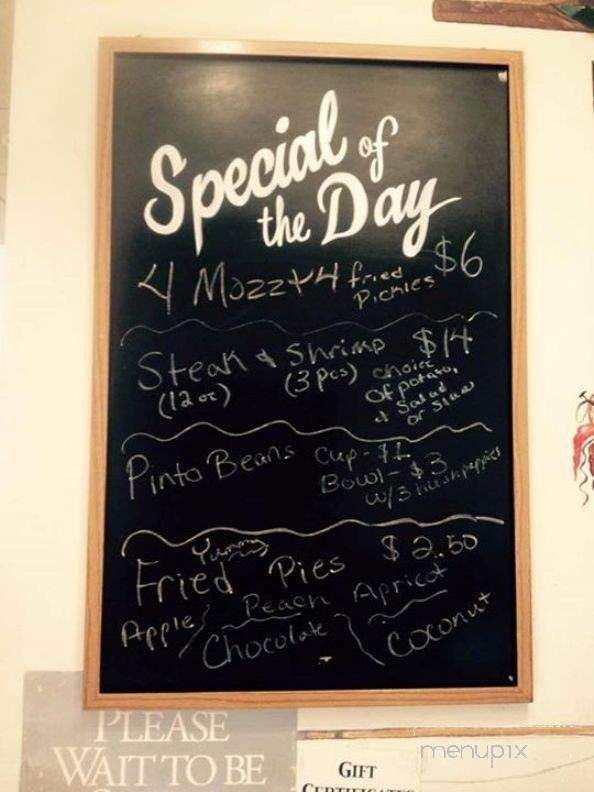 Special of
the Day
4 Mozz + 4 fried Pickles $6
Steak & Shrimp $14
(12 oz) (3 pcs) choice
of potato,
& Salad
or Slaw
Pinto Beans Cup - $1
Bowl - $3
w/3 hushpuppies
Yummy
Fried Pies $2.50
Apple Peach Apricot
Chocolate Coconut
PLEASE
WAIT TO BE
GIFT
CERTIFICATES
menupix